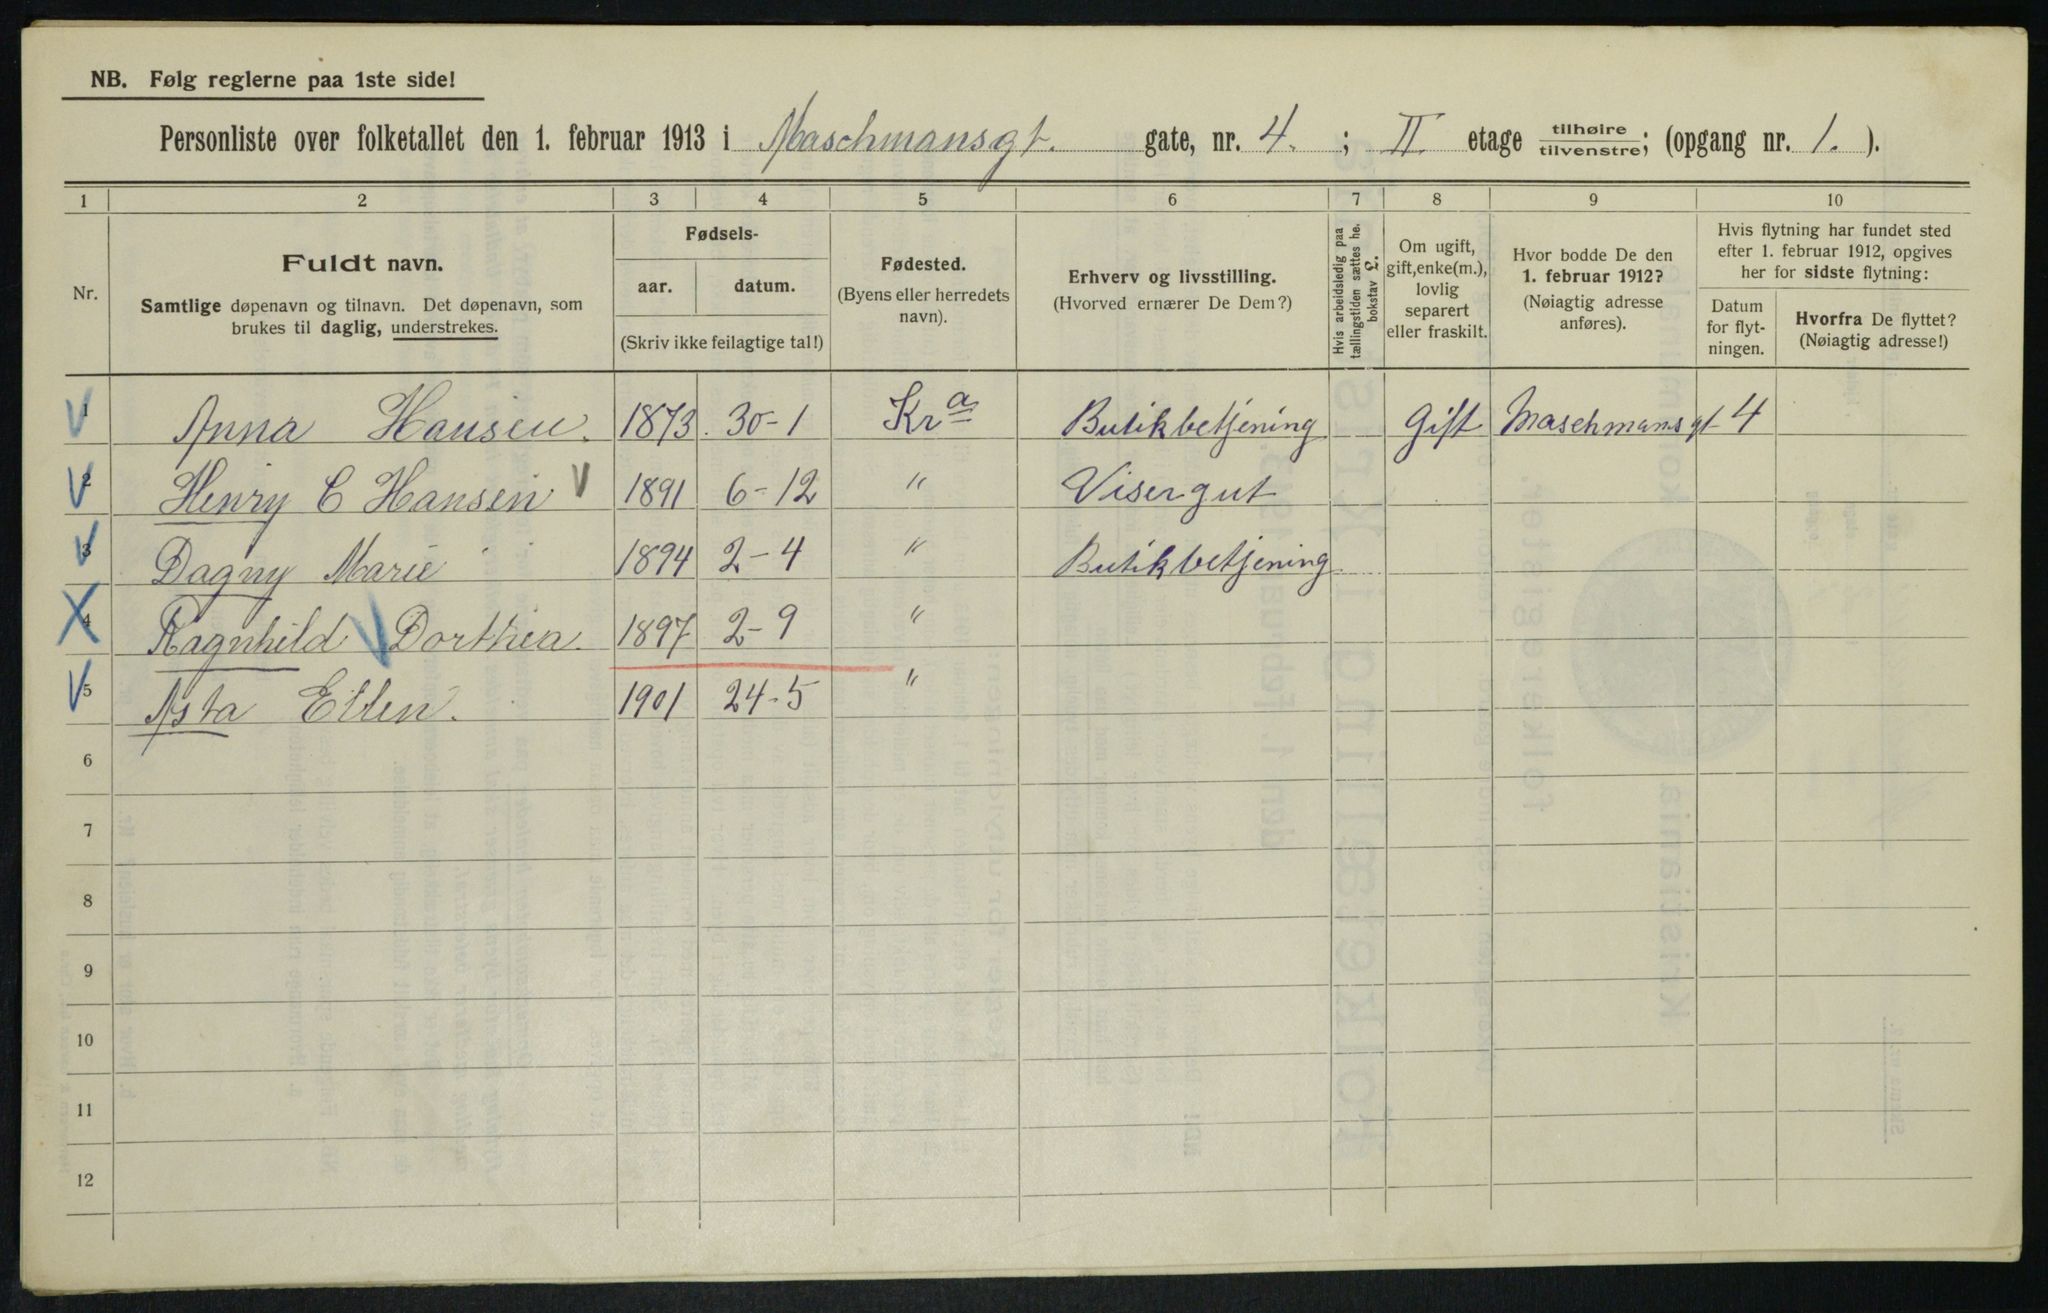 NB. Følg reglerne paa 1ste side!
Personliste over folketallet den 1. februar 1913 i Maschmansgt. gate, nr. 4. ; II. etage tilhøire/tilvenstre; (opgang nr. 1. ).
1 2 3 4 5 6 7 8 9 10
Nr.
Fuldt navn.
Samtlige døpenavn og tilnavn. Det døpenavn, som
brukes til daglig, understrekes.
Fødsels-
aar. datum.
(Skriv ikke feilagtige tal!)
Fødested.
(Byens eller herredets
navn).
Erhverv og livsstilling.
(Hvorved ernærer De Dem?)
Hvis arbeidsledig paa
tællingstiden sættes he.
bokstav L.
Om ugift,
gift, enke(m.),
lovlig
separert
eller fraskilt.
Hvor bodde De den
1. februar 1912?
(Nøiagtig adresse
anføres).
Hvis flytning har fundet sted
efter 1. februar 1912, opgives
her for sidste flytning:
Datum
for flyt-
ningen.
Hvorfra De flyttet?
(Nøiagtig adresse!)
1 Anna Hansen. 1873 30-1 Kra Butikbetjening Gift Maschmansgt 4
2 Henry C Hansen V 1891 6-12 " Visergut
3 Dagny Marie 1894 2-4 " Butikbetjening
4 Ragnhild Dorthea. 1897 2-9 "
5 Asta Ellen. 1901 24-5 "
6
7
8
9
10
11
12